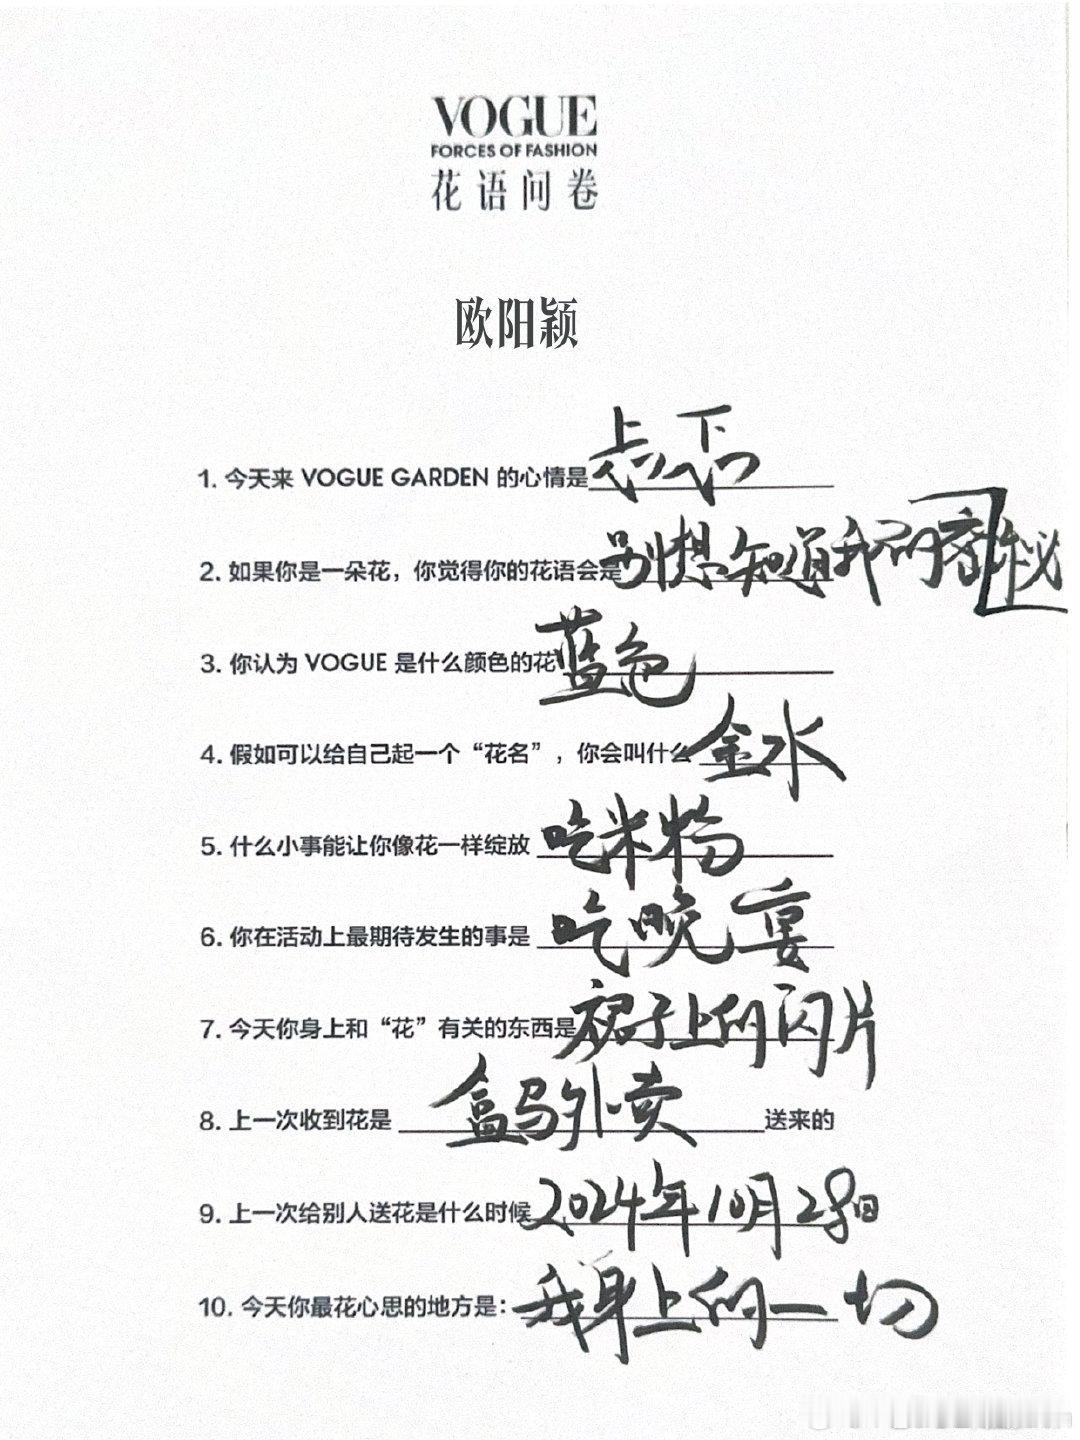 VOGUE
FORCES OF FASHION
花语问卷
欧阳颖
1. 今天来 VOGUE GARDEN 的心情是忐忑
2. 如果你是一朵花，你觉得你的花语会是别想知道我的秘
3. 你认为 VOGUE 是什么颜色的花蓝色
4. 假如可以给自己起一个“花名”，你会叫什么金水
5. 什么小事能让你像花一样绽放 吃米粉
6. 你在活动上最期待发生的事是 吃晚宴
7. 今天你身上和“花”有关的东西是裙子上的闪片
8. 上一次收到花是 盒马外卖 送来的
9. 上一次给别人送花是什么时候2024年10月28日
10. 今天你最花心思的地方是：我身上的一切